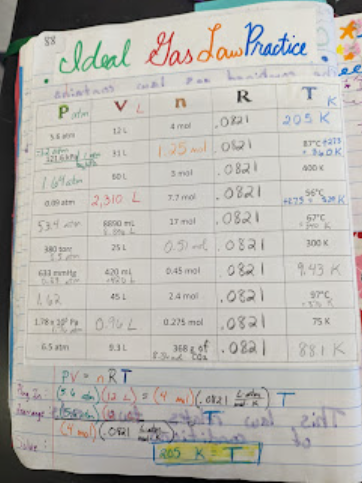 88
Ideal Gas Law Practice
P atm V L n R T K
5.6 atm 12 L 4 mol .0821 205 K
321.6 kPa 31 L 1.25 mol .0821 87°C +273 = 360 K
1.64 atm 60 L 3 mol .0821 400 K
0.09 atm 2,310 L 7.7 mol .0821 56°C +273 = 329 K
53.4 atm 8890 mL 17 mol .0821 67°C
380 torr 25 L 0.51 mol .0821 300 K
633 mmHg 420 mL 0.45 mol .0821 9.43 K
1.62 45 L 2.4 mol .0821 97°C
Pa 0.96 L 0.275 mol .0821 75 K
6.5 atm 9.3 L 368 g of .0821 88.1 K
PV = nRT
Plug In: (5.6 atm)(12 L) = (4 mol)(.0821 L·atm mol·K) T
(5.6 atm)(12 L) T
(4 mol)(.0821
Solve: 205 K = T